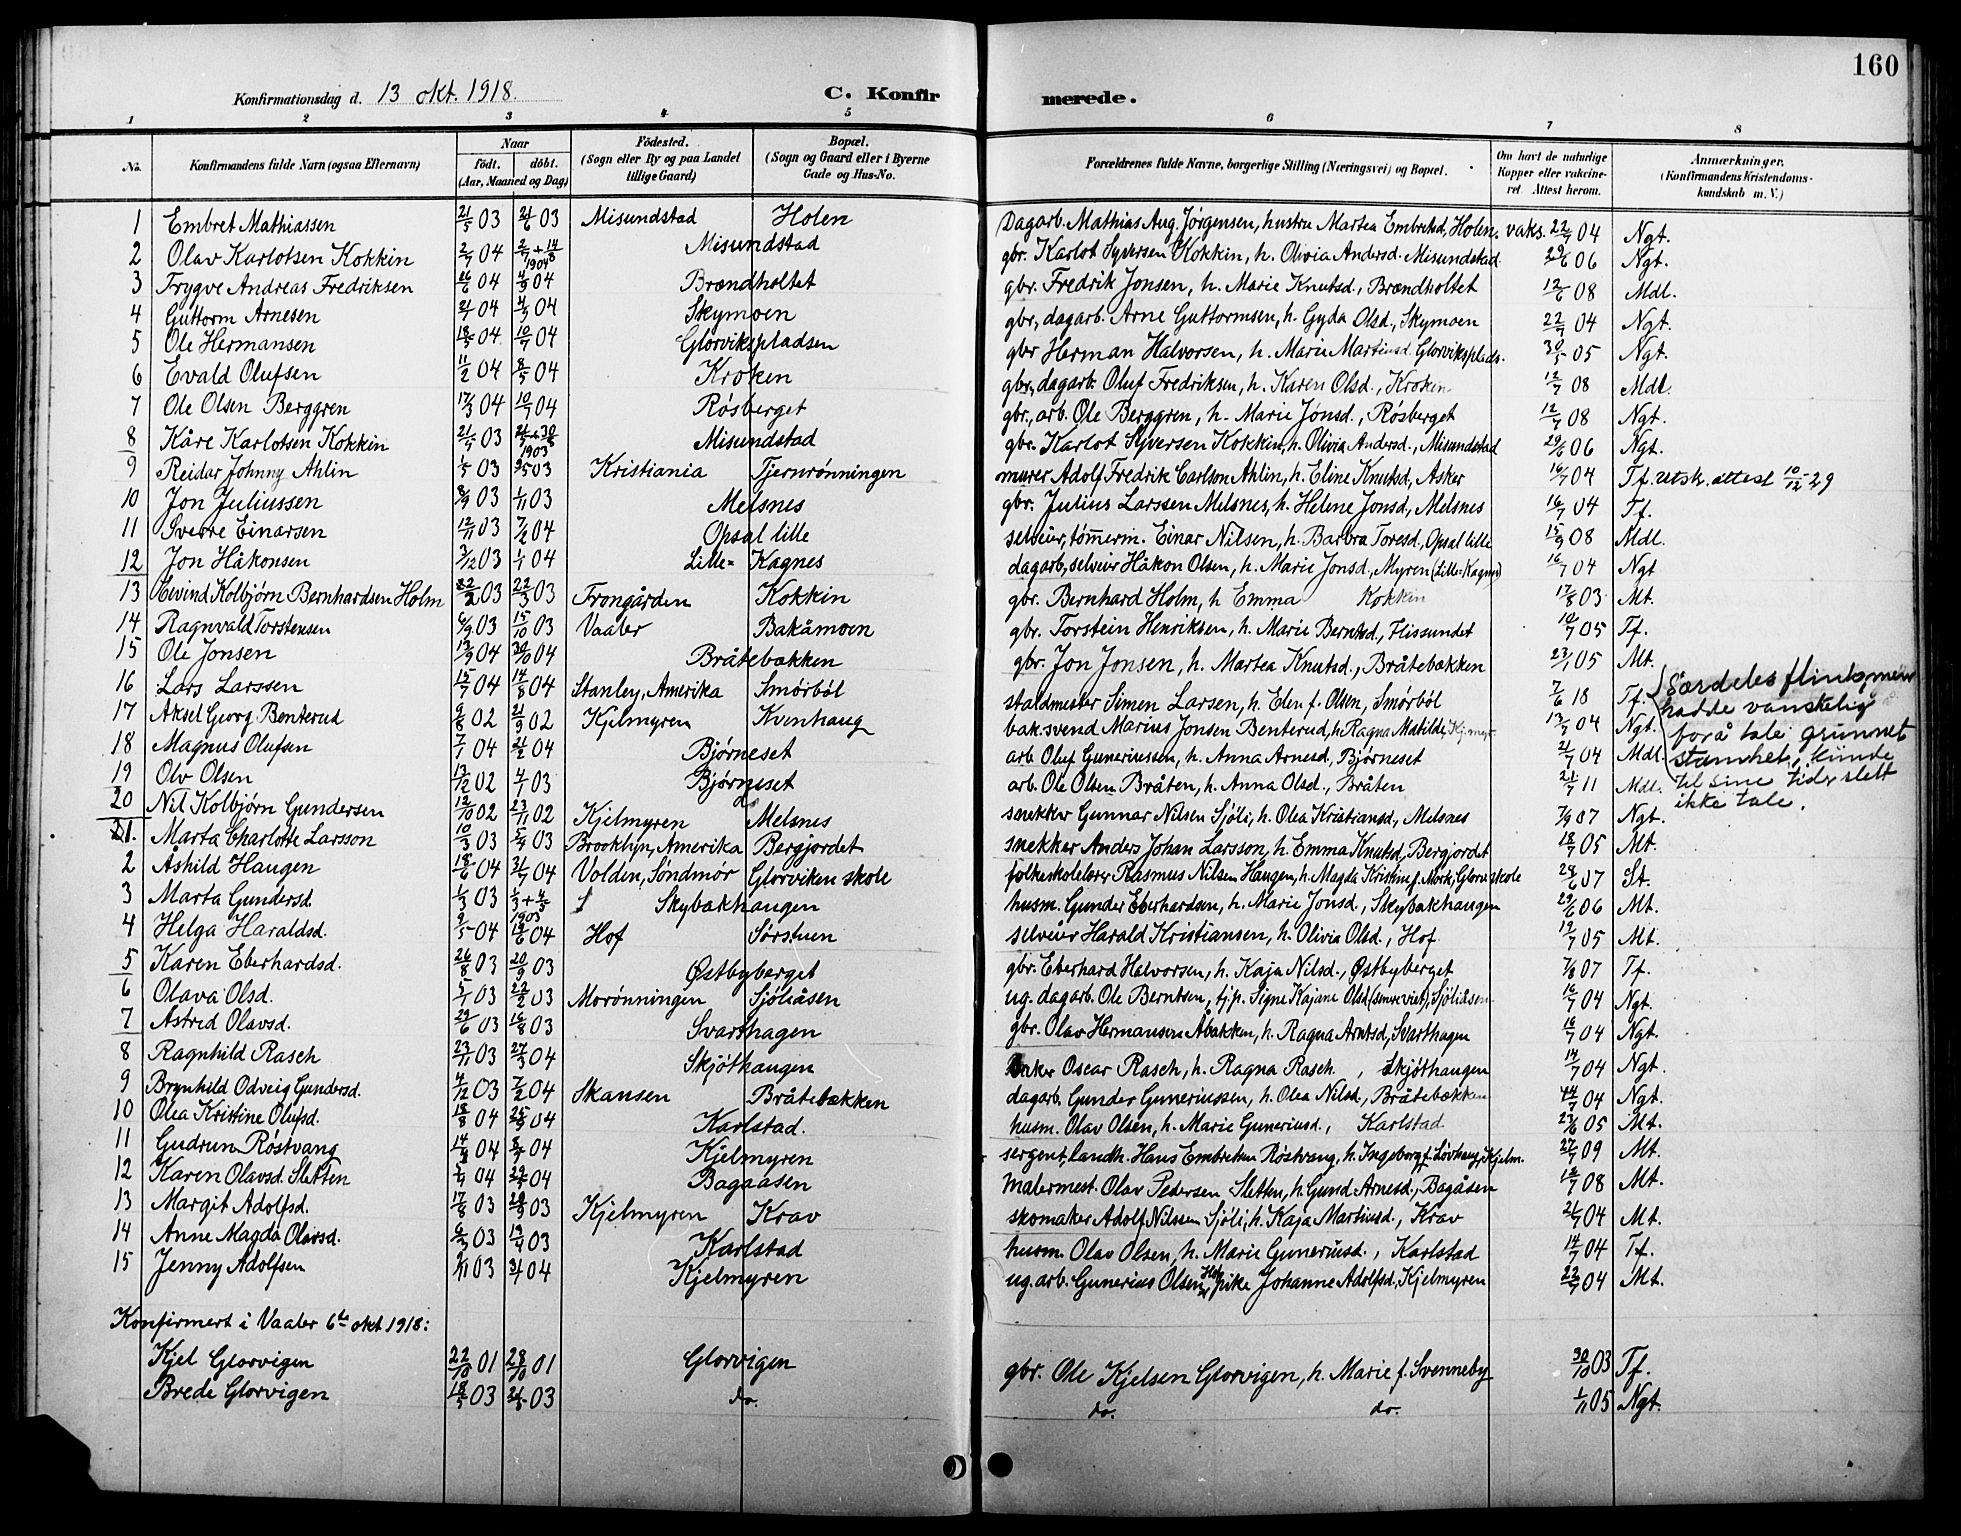 160
Konfirmationsdag d. 13 okt. 1918. C. Konfirmerede.
1 2 3 4 5 6 7 8
No. Konfirmandens fulde Navn (ogsaa Efternavn) Naar födt. döbt. (Aar, Maaned og Dag) Födested. (Sogn eller By og paa Landet tillige Gaard) Bopæl. (Sogn og Gaard eller i Byerne Gade og Hus-No. Forældrenes fulde Navne, borgerlige Stilling (Næringsvei) og Bopæl. Om havt de naturlige Kopper eller vakcineret. Attest herom. Anmærkninger. (Konfirmandens Kristendomskundskab m. V.)
1 Embret Mathiassen 21/5 03 21/6 03 Misundstad Holen Dagarb. Mathias Aug. Jørgensen, hustru Martea Embretsd, Holen. vaks. 22/7 04 Ngt.
2 Olav Karlotsen Kokkin 2/7 04 2/7 + 14/8 1904 Misundstad gbr. Karlot Syversen Kokkin, h. Olivia Andersd. Misundstad 29/6 06 Ngt.
3 Trygve Andreas Fredriksen 26/6 04 4/9 04 Brændholtet gbr. Fredrik Jonsen, h. Marie Knutsd., Brændholtet 12/6 08 Mdl.
4 Guttorm Arnesen 04 04 Skymoen gbr., dagarb. Arne Guttormsen, h. Gyda Olsd., Skymoen 22/7 04 Ngt.
5 Ole Hermansen 04 10/7 04 Glorvikspladsen gbr Herman Halvorsen, h. Marie Martinsd. Glorvikspladsn. 30/5 05 Ngt.
6 Evald Olufsen 11/2 04 8/5 04 Kroken gbr., dagarb. Oluf Fredriksen, h. Karen Olsd., Kroken 12/7 08 Mdl.
7 Ole Olsen Berggren 17/3 04 10/7 04 Røsberget gbr., arb. Ole Berggren, h. Marie Jonsd., Røsberget 12/7 08 Ngt.
8 Kåre Karlotsen Kokkin 21/7 03 1903 Misundstad gbr. Karlot Syversen Kokkin, h. Olivia Andersd., Misundstad 29/6 06 Ngt.
9 Reidar Johnny Ahlin 1/5 03 03 Kristiania Tjernrønningen murer Adolf Fredrik Carlson Ahlin, h. Eline Knutsd, Asker 16/7 04 Tf. utskr. attest 10/12 - 29
10 Jon Juliussen 8/9 03 1/11 03 Melsnes gbr. Julius Larssen Melsnes, h. Helene Jonsd., Melsnes 16/7 04 Tf.
11 Sverre Einarsen 12/11 03 7/2 04 Opsal lille selveier, tømerm. Einar Nilsen, h. Barbra Toresd, Opsal lille 15/9 08 Mdl.
12 Jon Håkonsen 3/12 03 1/1 04 Lille- Kagnes dagarb, selveier Håkon Olsen, h. Marie Jonsd., Myren (Lille-Kagnes) 16/7 04 Ngt
13 Eivind Kolbjørn Bernhardsen Holm 22/2 03 22/3 03 Frongården Kokkin gbr. Bernhard Holm, h Emma Kokkin 17/8 03 Mt.
14 Ragnvald Torstensen 6/9 03 15/10 03 Vaaler Bakåmoen gbr. Torstein Henriksen, h. Marie Berntsd., Flissundet 10/7 05 Tf.
15 Ole Jonsen 13/9 04 30/10 04 Bråtebækken gbr. Jon Jonsen, h. Martea Knutsd., Bråtebækken 23/1 05 Mt.
16 Lars Larssen 15/7 04 14/8 04 Stanley, Amerika Smørból staldmester Simen Larsen, h. Elen f. Olsen, Smørból 7/6 18 Tf.
17 Aksel Georg Benterud 9/8 02 21/9 02 Kjelmyren Kvenhaug bak.svend Marius Jonsen Benterud, h. Ragna Matilde, Kj.myr. 13/7 04 Ngt.
18 Magnus Olufsen 7/1 04 21/2 04 Bjørneset arb. Oluf Guneriussen, h. Anna Arnesd., Bjørneset 21/7 04 Mdl.
19 Olv Olsen 13/12 02 4/1 03 Bjørneset arb. Ole Olsen Bråten, h. Anna Olsd., Bråten 21/7 11 Mdl.
20 Nil Kolbjørn Gundersen 12/10 02 23/11 02 Kjelmyren Melsnes snekker Gunnar Nilsen Sjöli, h. Olea Kristiansd., Melsnes 7/9 07 Ngt.
Særdeles flink, men
hadde vanskelig
for å tale grunnet
stamhet, kunde
til sine tider slett
ikke tale.
1. Marta Charlotte Larsson 10/3 03 5/4 03 Brooklyn, Amerika Bergjordet snekker Anders Johan Larsson, h. Emma Knutsd, Bergjordet 18/7 05 Mt.
2 Åshild Haugen 18/6 04 31/7 04 Volden, Söndmør Glorviken skole folkeskolelærer Rasmus Nilsen Haugen, h. Magda Kristine f. Mork, Glorv. skole 28/6 07 St.
3 Marta Gundersd. 1/3 03 1903 Skybakhaugen husm. Gunder Eberhardsen, h. Marie Jonsd., Skybakhaugen 29/6 06 Mt.
4 Helga Haraldsd. 9/5 04 19/6 04 Hof Sørstuen selveier Harald Kristiansen, h. Olivia Olsd., Hof 19/7 05 Mt.
5 Karen Eberhardsd. 26/8 03 20/9 03 Østbyberget gbr. Eberhard Halvorsen, h. Kaja Nilsd., Østbyberget 7/8 07 Tf.
6 Olava Olsd. 5/1 03 22/2 03 Morønningen Sjöliåsen ug. dagarb. Ole Berntsen, tj.p. Signe Kajane Olsd (senre viet), Sjöliåsen 16/7 04 Ngt.
7 Astrid Olavsd. 29/6 03 16/8 03 Svarthagen gbr. Olav Hermansen Åbakken, h. Ragna Arntsd, Svarthagen 16/7 04 Ngt.
8 Ragnhild Rasch 23/11 03 27/3 04 Skjóthaugen Oscar Rasch, h. Ragna Rasch, Skjóthaugen 14/7 04 Ngt.
9 Brynhild Odveig Gundersd. 4/12 03 7/2 04 Skansen Bråtebækken dagarb. Gunder Guneriussen, h. Olea Nilsd., Bråtebækken 04 Ngt.
10 Olea Kristine Olufsd. 18/8 04 25/9 04 Karlstad. husm. Olav Olsen, h. Marie Guneriusd., Karlstad 23/6 05 Mt.
11 Gudrun Röstvang 04 04 Kjelmyren sergent, landh. Hans Embretsen Röstvang, h. Ingeborg f. Lövhaug, Kjelm. 27/7 09 Mt.
12 Karen Olavsd. Sletten 04 04 Bagaasen Malermest. Olav Pedersen Sletten, h. Gund. Arnesd., Bagåsen 12/7 08 Mt.
13 Margit Adolfsd. 17/8 03 20/9 03 Kjelmyren Krav skomaker Adolf Nilssen Sjöli, h. Kaja Martinsd., Krav 21/7 04 Mt.
14 Anne Magda Olavsd. 6/3 03 13/4 03 Karlstad husm. Olav Olsen, h. Marie Guneriusd., Karlstad 14/7 04 Tf.
15 Jenny Adolfsen 03 04 Kjelmyren ug. arb. Gunerius Olsen pike Johanne Adolfsd, Kjelmyren 22/7 04 Mt.
Konfirmert i Vaaler 6te okt 1918:
Kjel Glorvigen 22/8 01 28/10 01 Glorvigen gbr. Ole Kjelsen Glorvigen, h. Marie f. Svenneby 30/10 03 Tf.
Brede Glorvigen 03 03 do. do. do. 1/11 05 Ngt.